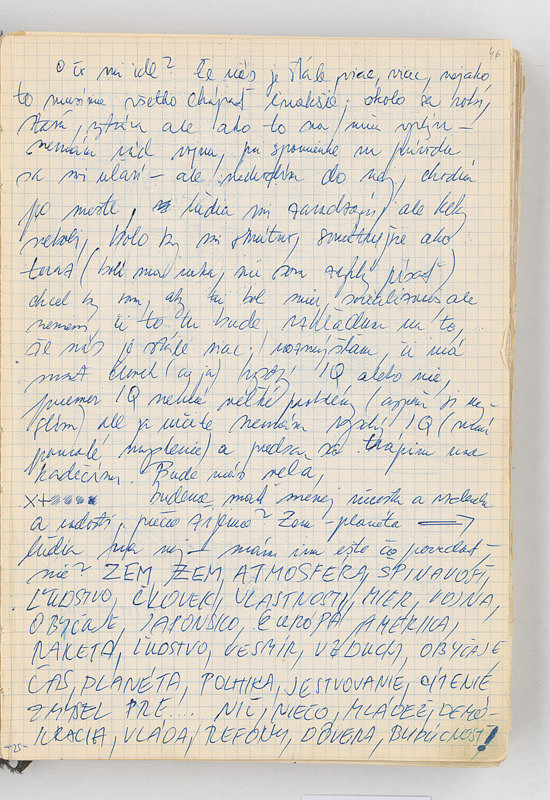 46
O čo mi ide? Že nás je stále viac, viac, nejako
to musíme všetko chápať ináčšie; okolo sa robí,
stará, stráca ale ako to na mňa vplýva –
nemám rád vojnu, pri spomienke na prírodu
sa mi – ale nechodím do nej, chodím
po meste, ľudia mi zavadzajú ale keby
neboli, bolo by mi smutno, smutnejšie ako
teraz (bolí ma ruka, nie som zvyklý písať)
chcel by som, aby tu bol mier, socializmus ale
neviem, či to tu bude, vzhľadom na to,
že nás je stále viac; rozmýšľam, či má
mať človek (aj ja) vysoký IQ alebo nie,
priemer IQ nemá veľké problémy (aspoň si myslím)
ale ja určite nemám vysoký IQ (mám
pomalé myslenie) a predsa sa trápim nad
kadečím. Bude nás veľa,
X+ budeme mať menej miesta a vzduchu
a radosti. prečo žijeme? Zem – planéta →
ľudia na nej – mám im ešte čo povedať –
nie? ZEM, ZEM, ATMOSFÉRA, ŠPINAVOSŤ,
ĽUDSTVO, ČLOVEK, VLASTNOSTI, MIER, VOJNA,
OBYČAJE JAPONSKO, EURÓPA AMERIKA,
RAKETA, ĽUDSTVO, VESMÍR, VZDUCH, OBYČAJE
ČAS, PLANÉTA, POLITIKA, JESTVOVANIE, CÍTENIE
ZMYSEL PRE... NIČ, NIEČO, MLÁDEŽ, DEMO-
KRACIA, VLÁDA, REFORMY, DÔVERA, BUDÚCNOSŤ!
-25-